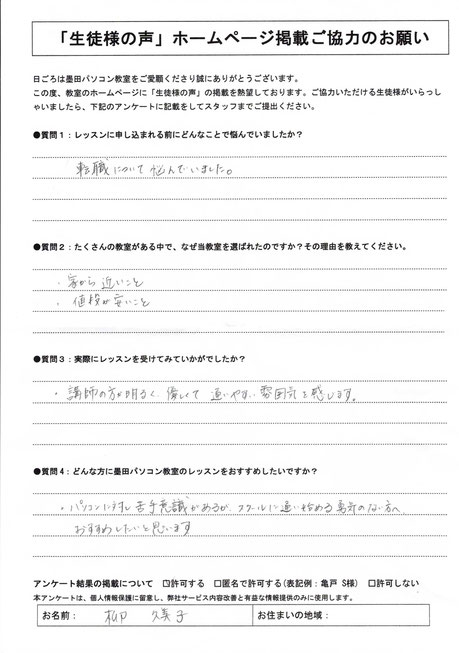 「生徒様の声」ホームページ掲載ご協力のお願い
日ごろは墨田パソコン教室をご愛顧くださり誠にありがとうございます。
この度、教室のホームページに「生徒様の声」の掲載を熱望しております。ご協力いただける生徒様がいらっし
ゃいましたら、下記のアンケートに記載をしてスタッフまでご提出ください。
●質問1:レッスンに申し込まれる前にどんなことで悩んでいましたか?
転職について悩んでいました。
●質問2:たくさんの教室がある中で、なぜ当教室を選ばれたのですか?その理由を教えてください。
・家から近いこと
・値段が安いこと
●質問3:実際にレッスンを受けてみていかがでしたか?
・講師の方が明るく、優しくて通いやすい雰囲気を感じます。
●質問4:どんな方に墨田パソコン教室のレッスンをおすすめしたいですか?
・パソコンに対し苦手意識があるが、スクールに通い始める勇気のない方へ
おすすめしたいと思います
アンケート結果の掲載について ☑許可する □匿名で許可する(表記例:亀戸 S様) □許可しない
本アンケートは、個人情報保護に留意し、弊社サービス内容改善と有益な情報提供のみに使用します。
お名前: 久美子 お住まいの地域: